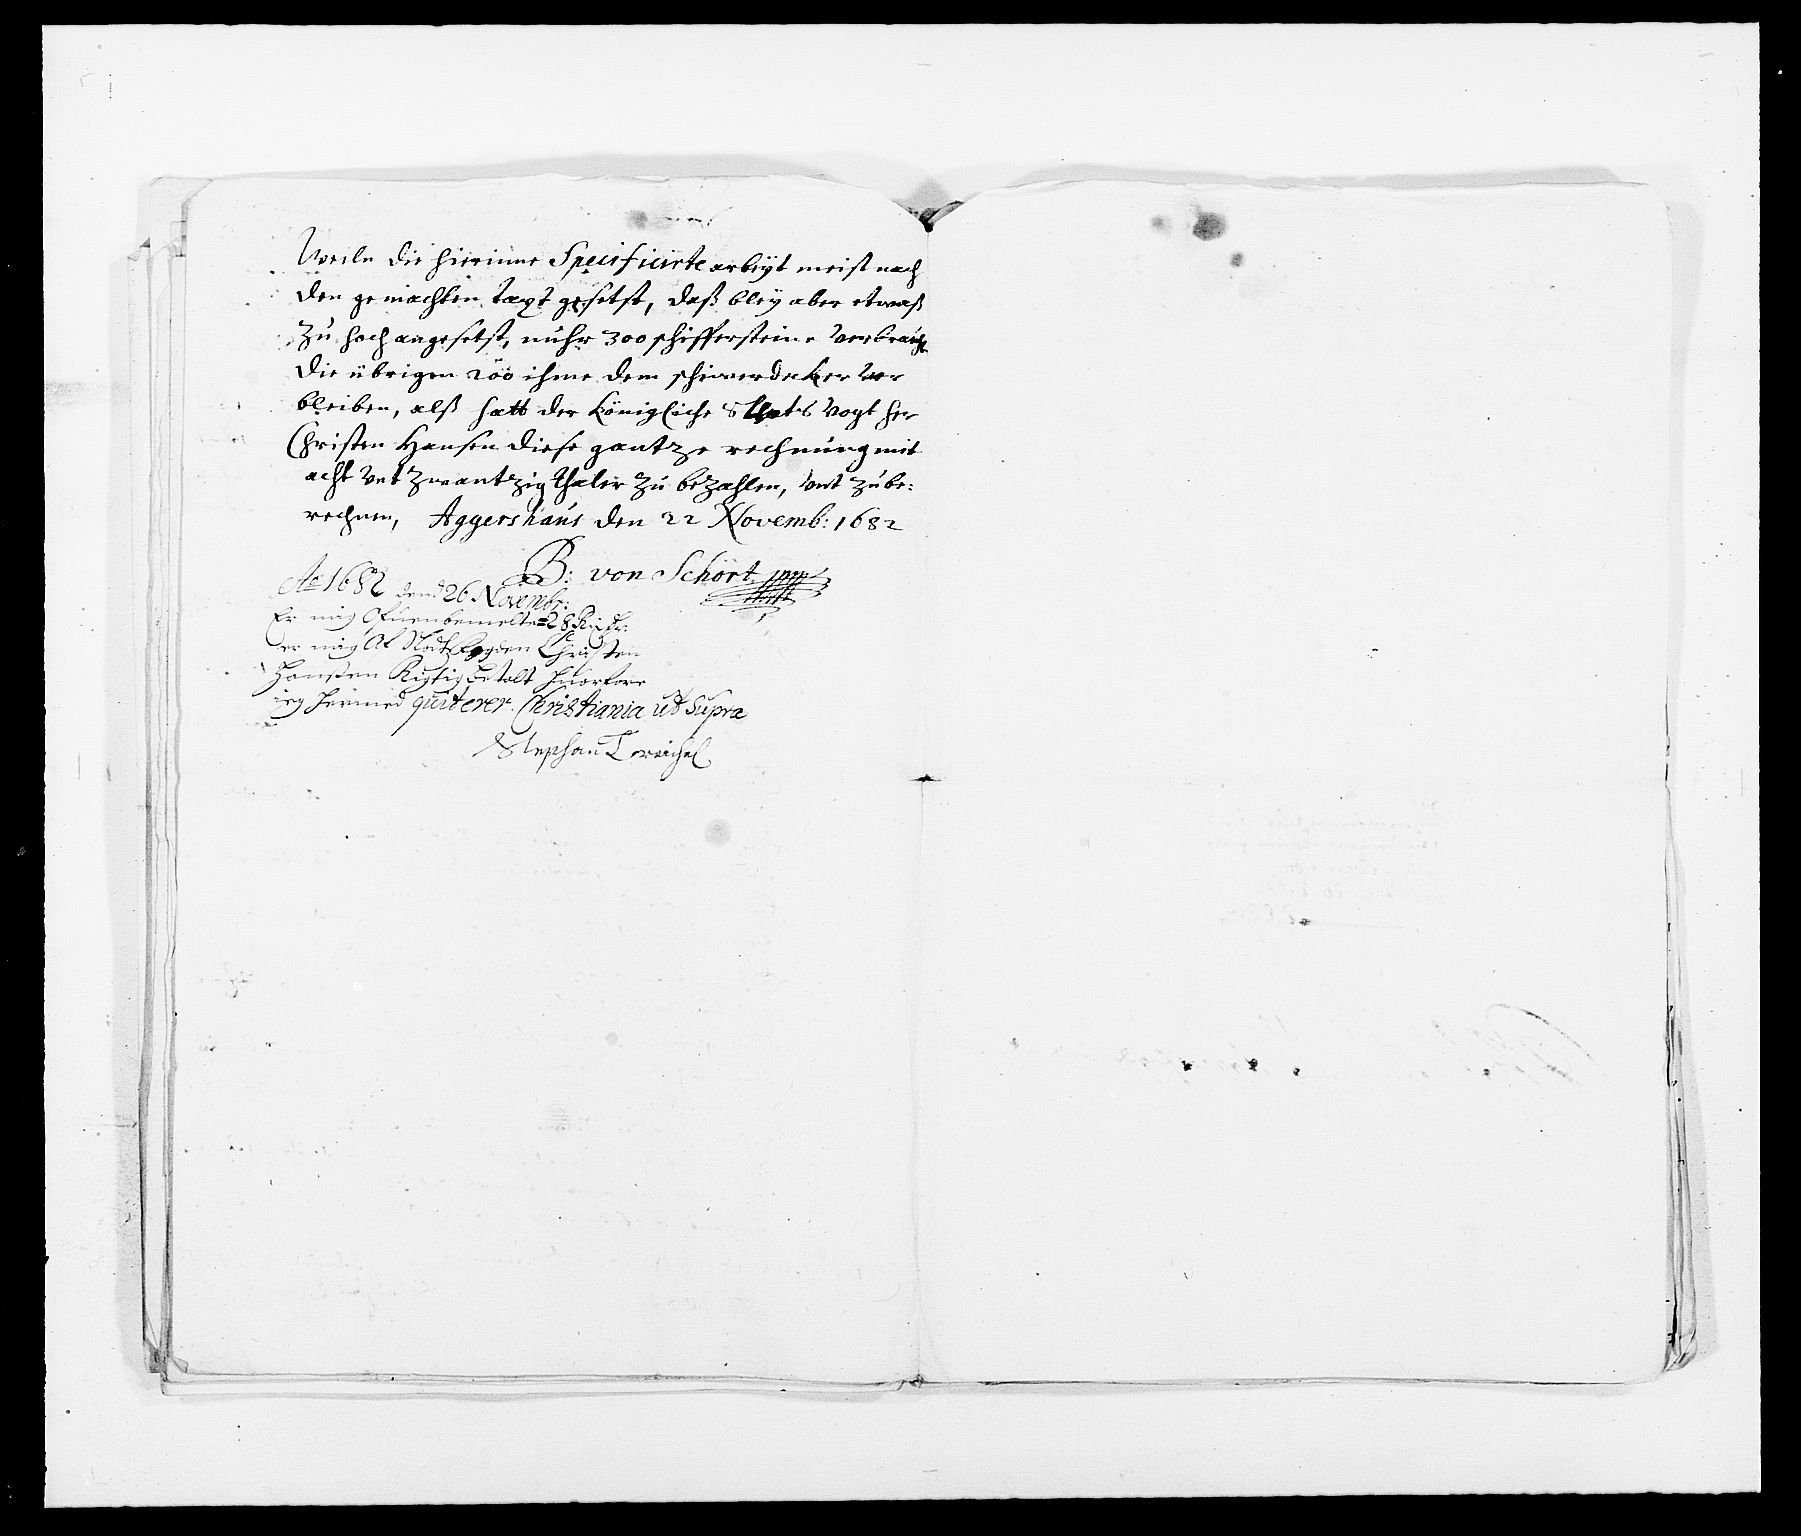 Weiln die hierinne Specificirte arbeyt meist nach
den gemachten taxt gesetst, daß bley aber etwaß
Zu hoch angesetst, nuhr 300 schiffersteine Verbraucht
die übrigen 200 ihme dem schiwerdecker Ver
bleiben, alß hatt der Königliche Vogt her
Christen Hansen diese gantze rechnung mit
acht Vnt Zwantzig thaler Zu beZahlen, Vnt Zube:
rechnen, Aggershaus den 22 Novemb: 1682
B: von Schört
Ao 1682 dend 26 Novembr:
Er mig Ofuenbemelte 28 Rix dr:
er mig Af Christen
Hanssen Rigtig betalt huorfore
ieg hermed quiterer. Christiania ut Supra
Stephan